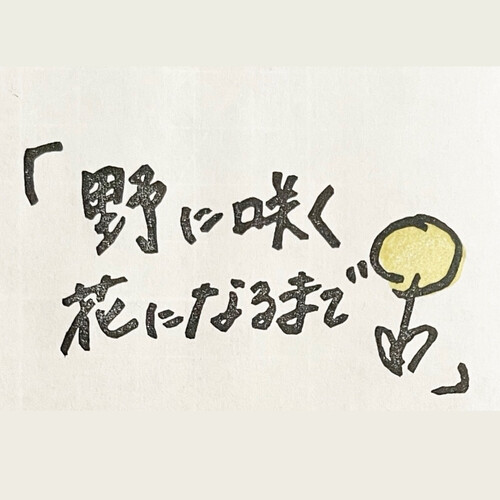 「野に咲く
花になるまで」